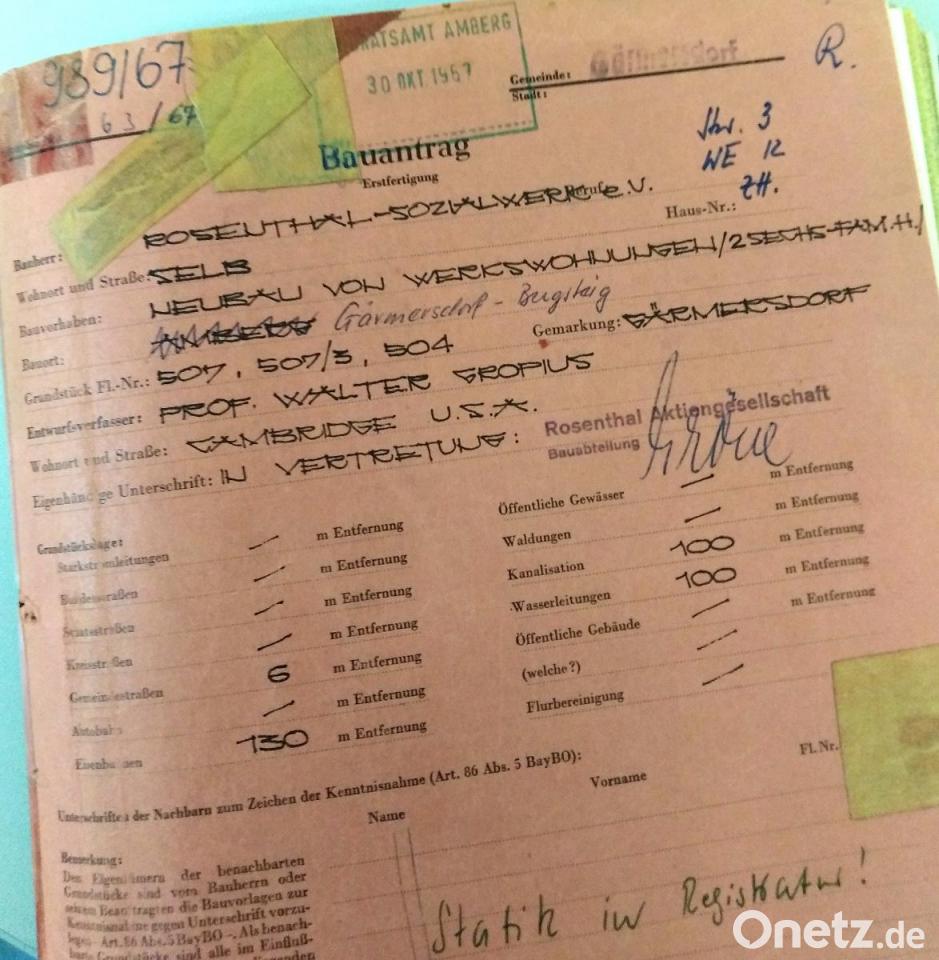 989/67
63/67
RATSAMT AMBERG
30 OKT. 1967
Gemeinde:
Stadt:
R.
Bauantrag
Erstfertigung
Str. 3
WE 12
ZH.
Bauherr: ROSENTHAL-SOZIALWERK e.V.
Haus-Nr.:
Wohnort und Straße: SELB
Bauvorhaben: NEUBAU VON WERKSWOHNUNGEN/2 SECHS-FAM.H./
Bauort: AMBERG Gärmersdorf - Bergsteig
Grundstück Fl.-Nr.: 507, 507/3, 504 Gemarkung: GÄRMERSDORF
Entwurfsverfasser: PROF. WALTER GROPIUS
Wohnort und Straße: CAMBRIDGE U.S.A.
Eigenhändige Unterschrift: IN VERTRETUNG:
Rosenthal Aktiengesellschaft
Bauabteilung
Grundstückslage:
Starkstromleitungen — m Entfernung
Bundesstraßen — m Entfernung
Staatsstraßen — m Entfernung
Kreisstraßen — m Entfernung
Gemeindestraßen 6 m Entfernung
Autobahn — m Entfernung
Eisenbahnen 130 m Entfernung
Öffentliche Gewässer — m Entfernung
Waldungen — m Entfernung
Kanalisation 100 m Entfernung
Wasserleitungen 100 m Entfernung
Öffentliche Gebäude — m Entfernung
(welche?) —
Flurbereinigung —
Unterschriften der Nachbarn zum Zeichen der Kenntnisnahme (Art. 86 Abs. 5 BayBO):
Name Vorname Fl.Nr.
Bemerkung:
Den Eigentümern der benachbarten
Grundstücke sind vom Bauherrn oder
seinem Beauftragten die Bauvorlagen zur
Kenntnisnahme gegen Unterschrift vorzu-
legen - Art. 86 Abs. 5 BayBO -. Als benach-
barte Grundstücke sind alle im Einfluß-
Statik in Registratur!
Onetz.de